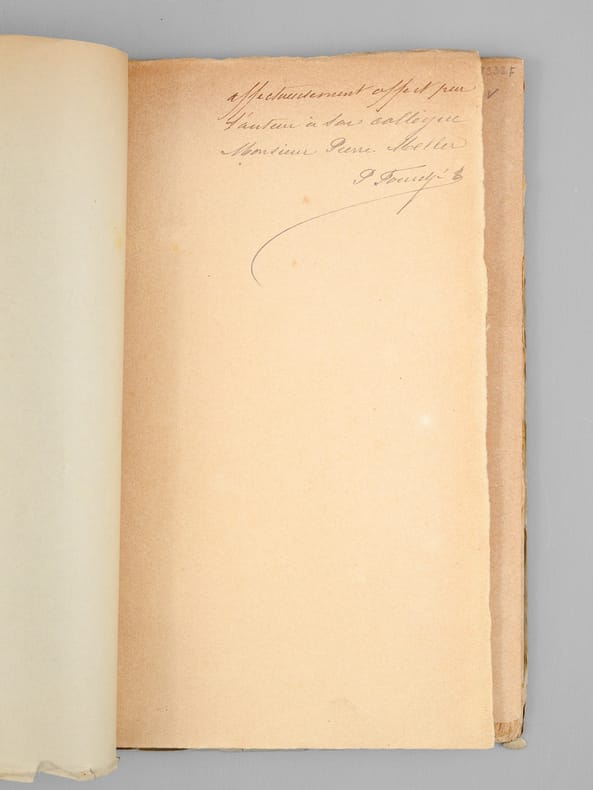 affectueusement offert par
l'auteur à son collègue
Monsieur Pierre Metler
P